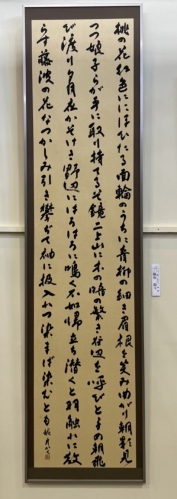 桃の花紅色ににほひたる面輪のうちに青柳の細き眉根を笑み曲がり朝影見
つつ娘らが手に取り持てるまそ鏡二上山に木の暗の繁き谷辺を呼びとよめ朝飛
び渡り夕月夜かそけき野辺にはろはろに鳴く不如帰立ち潜くと羽触れに散
らす藤波の花なつかしみ引き攀ぢて袖に扱入れつ染まば染むとも